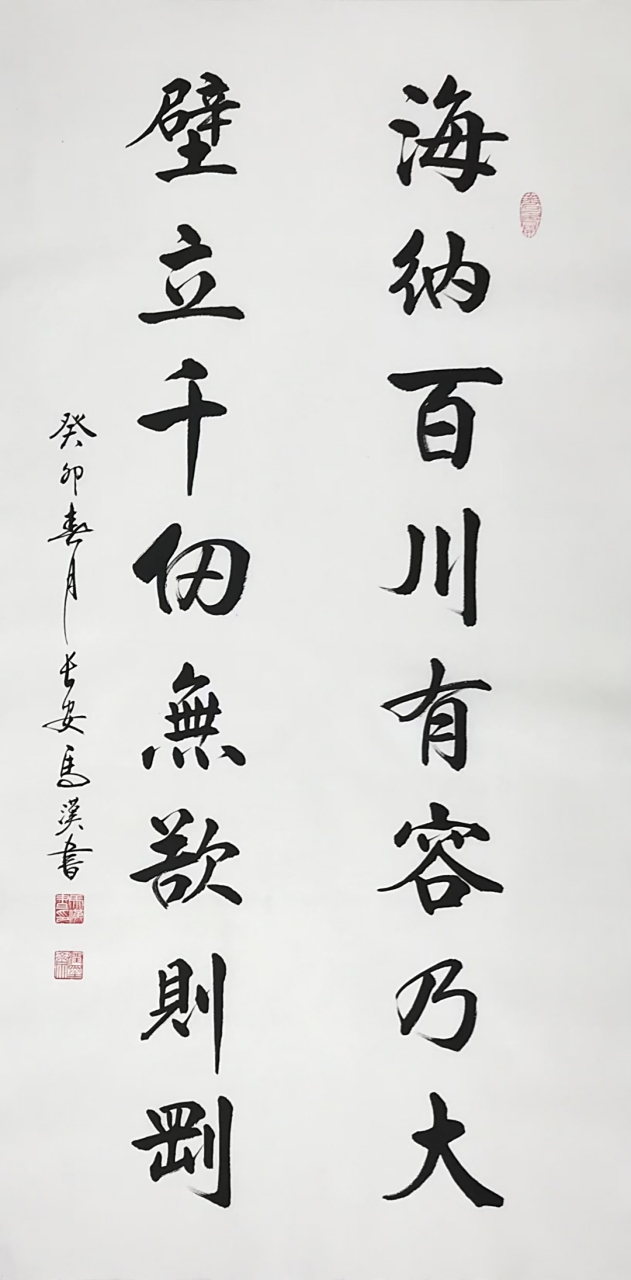 海納百川有容乃大
壁立千仞無欲則剛
癸卯春月長安馬漢書